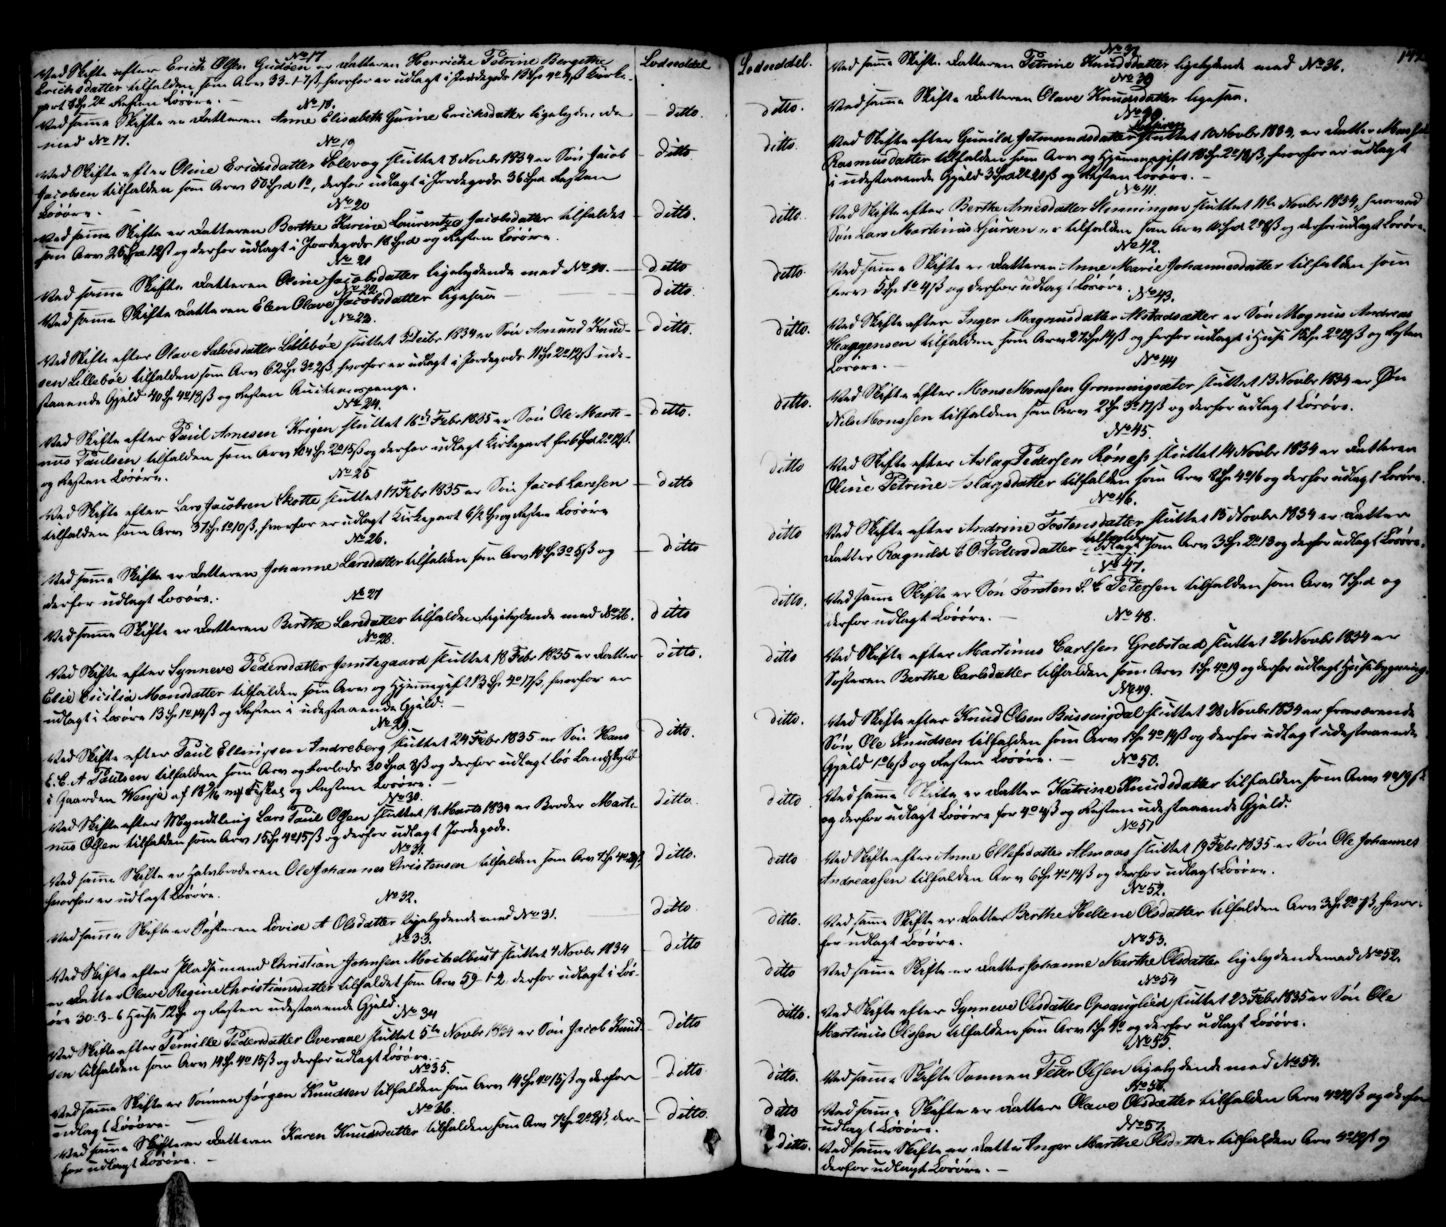 No 17
Ved Skifte efter Erich Olsen Gudøen er Datteren Henricke Petrine Bergithe
Erichsdatter tilfalden som Arv 33-1-7ß, hvorfor er udlagt i Jordegods 18 Sp 4 ß Kirke-
part 8 Sp Resten Løsøre. —
No 18.
Ved samme Skifte er Datteren Anne Elisabeth Gurine Erichsdatter ligelydende
med No 17.
No 19
Ved Skifte efter Oline Erichsdatter sluttet 8 Novbr 1834 er Søn Jacob
Jacobsen tilfalden som Arv 50 Spd derfor udlagt i Jordegods 36 Spd Resten
Løsøre. —
No 20
Ved samme Skifte er Datteren Berthe Karine Laurentze Jacobsdatter tilfaldet
som Arv 25 12ß og derfor udlagt i Jordegods 18 Spd og Resten Løsøre.
No 21
Ved samme Skifte Datteren Oline Jacobsdatter ligelydende med No 20. —
No 22.
Ved samme Skifte Datteren Elen Olave Jacobsdatter ligesaa —
No 23.
Ved Skifte efter Olave Salvesdatter Lillebøe sluttet Decbr 1834 er Søn Amund Knud-
sen Lillebøe tilfalden som Arv 62 Sp 3 2ß, hvorfor er udlagt i Jordegods 11 Sp 2 19ß ude-
staaende Gjeld 40 Sp 4 18ß og Resten Auctionspenge.
No 24.
Ved Skifte efter Paul Arnesen Krigen sluttet 16de Febr 1835 er Søn Ole Marti-
nus Paulsen tilfalden som Arv 104 Sp 2 15ß og derfor udlagt Kirkepart for
og Resten Løsøre.
No 25
Ved Skifte efter Lars Jacobsen Skotte sluttet 17 Febr 1835 er Søn Jacob Larssen
tilfalden som Arv 37 Sp 1 10ß, hvorfor er udlagt Kirkepart 6/2 Sp og Resten Løsøre
No 26.
Ved samme Skifte er Datteren Johanne Larsdatter tilfalden som Arv 18 Sp 3 5ß og
derfor udlagt Løsøre.
No 27
Ved samme Skifte er Datteren Birthe Larsdatter tilfalden ligelydende med No 26.
No 28.
Ved Skifte efter Synneve Pedersdatter Jemtegaard sluttet 18 Febr 1835 er Datter
Elie Cicilia Monsdatter tilfalden som Arv og Hjemmegift 213 Sp 4 17ß, hvorfor er
udlagt i Løsøre 13 Sp 1 14ß og Resten i udestaaende Gjeld. —
No 29.
Ved Skifte efter Paul Ellingsen Indreberg sluttet 24 Febr 1835 er Søn Hans
E. C. A Paulsen tilfalden som Arv og Forlods 30 Spd 8ß og derfor udlagt Løs Landskyld
i Gaarden Wenje af og Resten Løsøre.
No 30.
Ved Skifte efter Myndtling Lars Paul Olsen sluttet 1 Marts 1834 er Broder Marti-
nus Olsen tilfalden som Arv 15 Sp 4 15ß og derfor udlagt Jordegods.
No 31.
Ved samme Skifte er Halvbroderen Ole Johannes Christensen tilfalden som Arv 7 Sp 4
hvorfor er udlagt Løsøre.
No 32.
Ved samme Skifte er Søsteren Lovise A Olsdatter ligelydende med No 31.
No 33.
Ved Skifte efter Pladsmand Christian Johnsen Moichelbust sluttet 4 Novbr 1834
er Datter Olave Regine Christiansdatter tilfaldet som Arv 59-1-2, derfor udlagt i Løs-
øre 30-3-6 Huse 12 Sp og Resten udestaaende Gjeld.
No 34
Ved Skifte efter Pernille Pedersdatter Overaae sluttet 5te Novbr 1834 er Søn Jacob Knud-
sen tilfalden som Arv 14 Sp 4 15ß og derfor udlagt Løsøre.
No 35.
Ved samme Skifte er Sønnen Jørgen Knudsen tilfalden som Arv 14 Sp 4 15ß og derfor
udlagt Løsøre. —
No 36.
Ved samme Skifte er Datteren Karen Knudsdatter tilfalden som Arv 7 Sp 2 8ß, der-
for udlagt Løsøre. —
Lodseddel
ditto.
ditto
ditto.
ditto
ditto.
ditto.
ditto.
ditto
ditto
ditto
ditto.
ditto.
ditto.
ditto.
ditto
ditto
ditto
ditto
ditto.
Lodseddel.
142
No 37
Ved samme Skifte Datteren Petrine Knudsdatter ligelydende med No 36.
No 39
ditto. Ved samme Skifte Datteren Olave Knudsdatter ligesaa.
No 40
ditto. Ved Skifte efter Gunild Gutmundsdatter sluttet 10 Novbr 1834, er Datter
Rasmusdatter tilfalden som Arv og Hjemmegift 18 Sp 2 18ß, hvorfor er udlagt
i udestaaende Gjeld 3 Spd og Resten Løsøre. —
No 41.
ditto Ved Skifte efter Berthe Arnesdatter Henningen sluttet 11te Novbr 1834, hvorved
Søn Lars Martinus Sjursen er tilfalden som Arv 2 8ß og derfor udlagt Løsøre.
No 42.
ditto Ved samme Skifte er Datteren Anne Marie Johannesdatter tilfalden som
Arv 5 Sp 1 4ß og derfor udlagt Løsøre.
No 43.
ditto. Ved Skifte efter Inger Magnusdatter Alstadsæter er Søn Magnus Andreas
Haagensen tilfalden som Arv 27 Sp 14ß og hvorfor udlagt i Huse 15 Sp 2 19ß og Resten
Løsøre. —
No 44
ditto. Ved Skifte efter Mons Monssen Grønningsæter sluttet 13 Novbr 1834 er Søn
Nils Monssen tilfalden som Arv 2 Sp 3 17ß og derfor udlagt Løsøre.
No 45.
ditto Ved Skifte efter Aslag Pedersen Rønass sluttet 14 Novbr 1834 er Datteren
Oline Petrine Aslagsdatter tilfalden som Arv 8 Sp 4 16 og derfor udlagt Løsøre.
No 46.
ditto Ved Skifte efter Andrine Tostensdatter sluttet 15 Novbr 1834 er Datter
Datter Ragnild E O Pedersdatter tilfalden som Arv 3 Sp 2 18 og derfor udlagt Løsøre.
No 47.
ditto. Ved samme Skifte er Søn Torsten S. C Petersen tilfalden som Arv 7 Spd og
derfor udlagt Løsøre. —
No 48.
ditto Ved Skifte efter Martinus Carlsen Grebstad sluttet 26 Novbr 1834 er
Søsteren Berthe Carlsdatter tilfalden som Arv 1 Sp 4 19 og derfor udlagt Huusebygning.
No 49.
ditto. Ved Skifte efter Knud Olsen Bussengdal sluttet 28 Novbr 1834 er fraværende
Søn Ole Knudsen tilfalden som Arv 1 Sp 4 14ß og derfor udlagt udestaaende
Gjeld 1 6ß og Resten Løsøre. —
No 50.
ditto Ved samme Skifte er Datter Katrine Knudsdatter tilfalden som Arv 4 19ß
og derfor udlagt Løsøre for 4 4ß og Resten udestaaende Gjeld.
No 51
ditto Ved Skifte efter Anne Ellefsdatter Almaas sluttet 19 Febr 1835 er Søn Ole Johannes
Andreassen tilfalden Arv 6 Sp 4 14ß og derfor udlagt Løsøre.
No 52.
ditto. Ved samme Skifte er Datter Berthe Hellene Olsdatter tilfalden Arv 3 Sp 2 7ß, hvor-
for udlagt Løsøre.
No 53.
ditto Ved samme Skifte er Datter Johanne Marthe Olsdatter ligelydende med No 52.
No 54
ditto. Ved Skifte efter Synneve Olsdatter Opsanglied sluttet 23 Febr 1835 er Søn Ole
Martinus Olsen tilfalden som Arv 1 Sp 4 og derfor udlagt Løsøre.
No 55.
ditto. Ved samme Skifte Sønnen Peter Olsen ligelydende med No 54.
No 56.
ditto Ved samme Skifte er Datter Olave Olsdatter tilfalden Arv og derfor
udlagt Løsøre. —
No 57.
ditto. Ved samme Skifte er Datter Inger Marthe Olsdatter tilfalden Arv og
derfor udlagt Løsøre. —